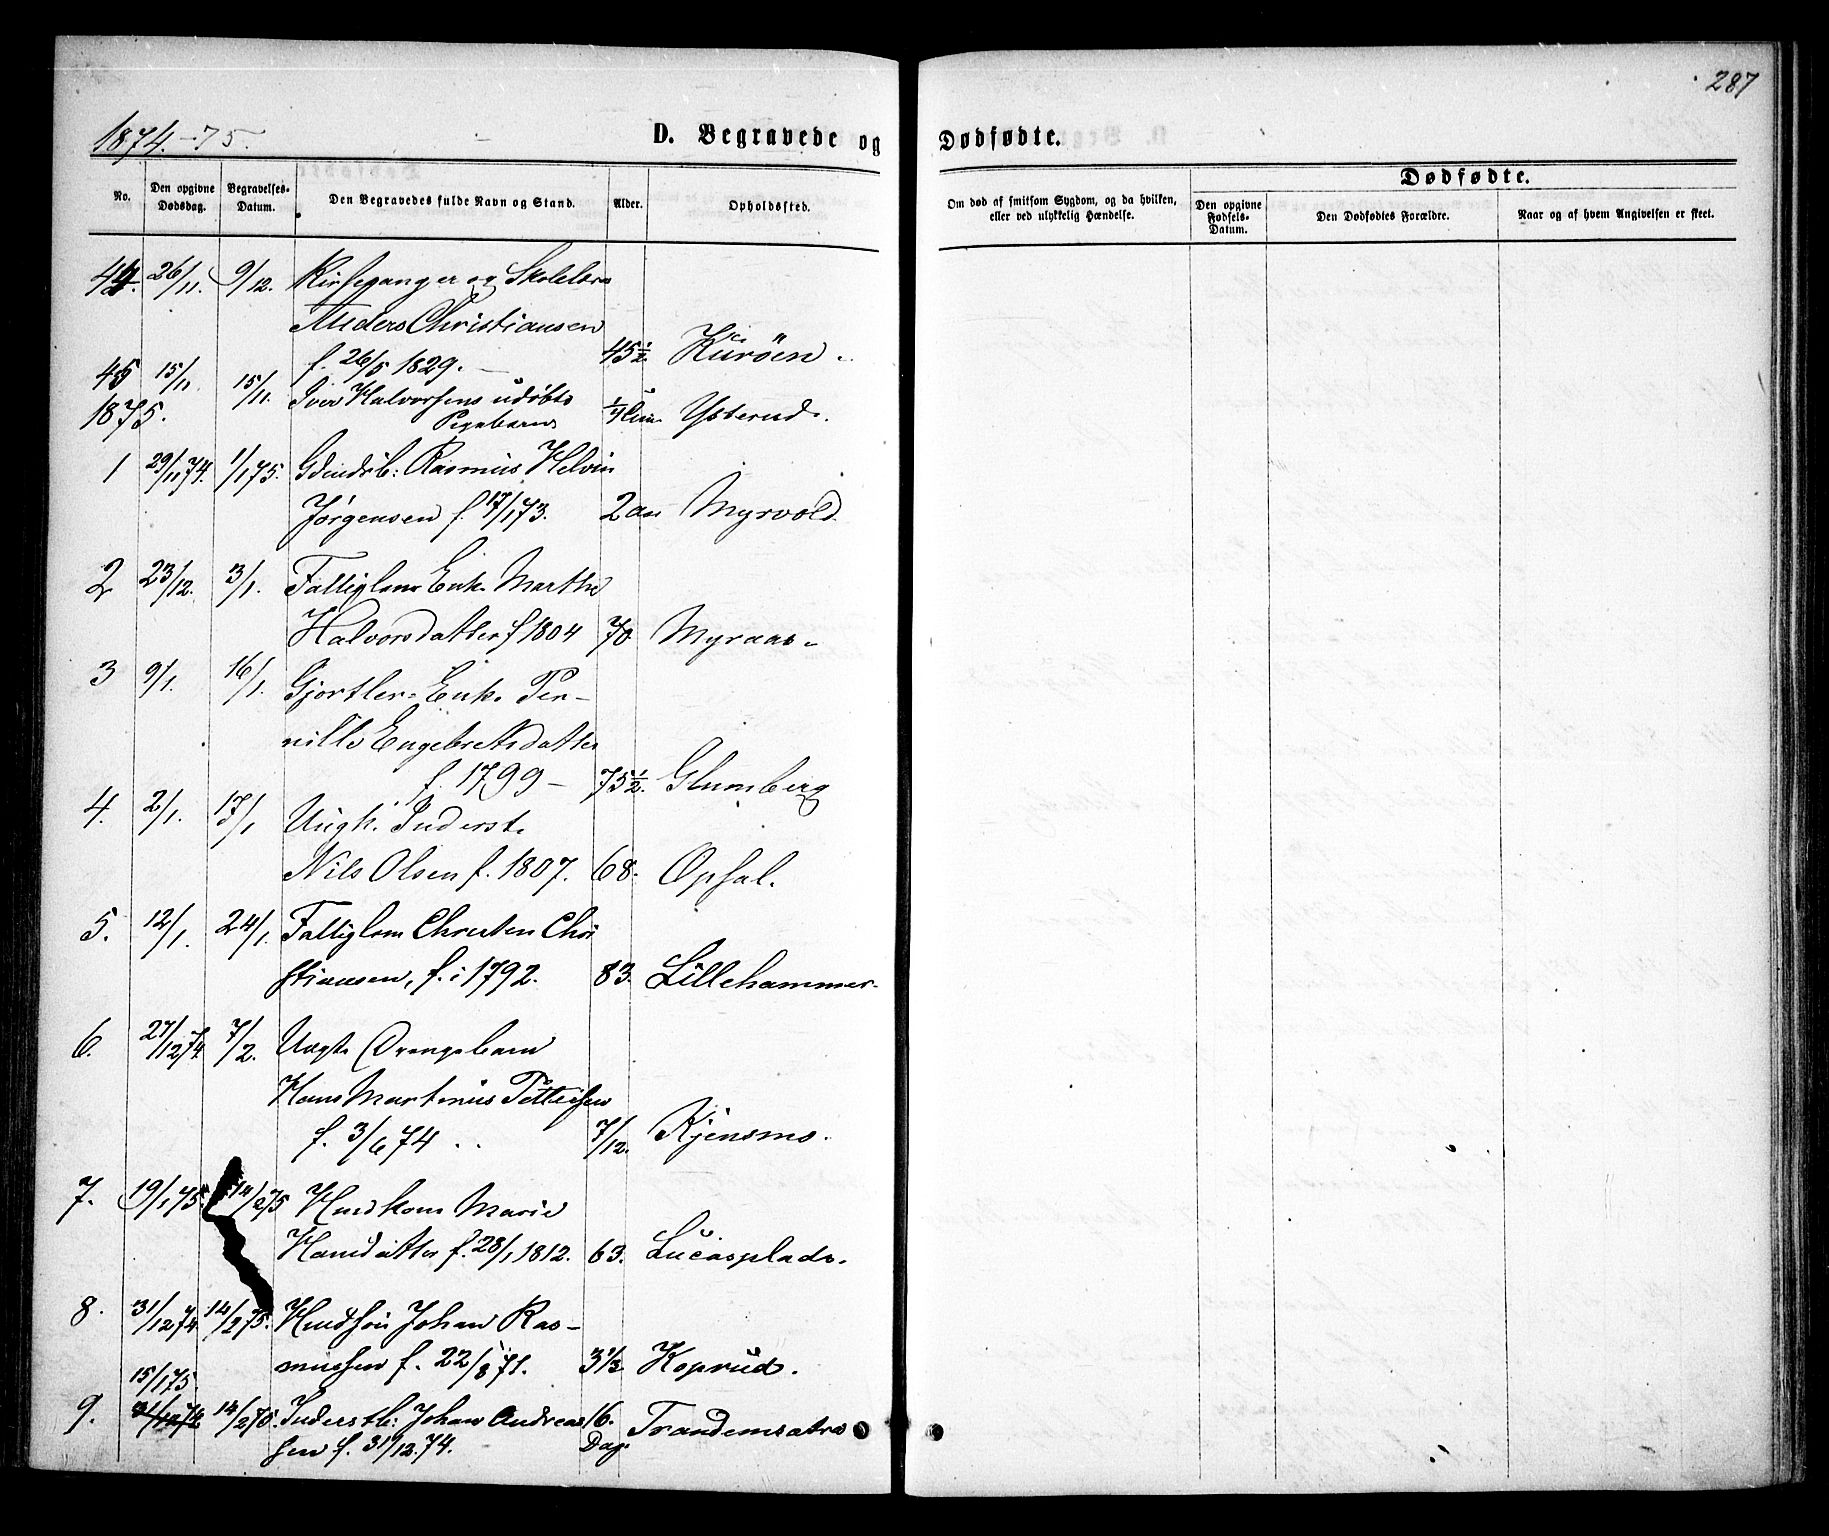 287
1874.-75.
D. Begravede og Dødfødte.
No.
Den opgivne Dødsdag.
Begravelses-Datum.
Den Begravedes fulde Navn og Stand.
Alder.
Opholdssted.
Om død af smitsom Sygdom, og da hvilken, eller ved ulykkelig Hændelse.
Dødfødte.
Den opgivne Fødsels-Datum.
Den Dødfødtes Forældre.
Naar og af hvem Angivelsen er skeet.
44. 26/11. 9/12. Kirkesanger og Skolelærer
Anders Christiansen
f. 26/5 1829. 45½. Kurøen.
45 15/11. 15/11. Iver Halvorsens udøbte
Pigebarn Ysterud.
1875.
1 29/11 74. 1/1 75. Rasmus Helvin
Jørgensen f. 17/1 73. 2 Myrvold
2 23/12. 3/1. Fattiglem Enke Marthe
Halvorsdatter f 1804 70 Myraas.
3 9/1. 16/1. Gjørtler-Enke Per-
nille Engebretsdatter
f. 1799 - 75½. Glumberg
4. 2/1. 17/1 Ungk. Inderst.
Nils Olsen f. 1807. 68. Opsal.
5. 12/1. 24/1. Fattiglem Christen Chri
stiansen, f. i 1792. 83. Lillehammer.
6. 27/12 74. 7/2. Uægte Drengebarn
Hans Martinius Pettersen
f. 3/6 74 7/12. Kjensmo.
7. 19/1 75. 14/2 75 Huuskone Marie
Hansdatter f. 28/1 1812. 63. Lucasplads.
8. 31/12 74 14/2 75. Johan Ras-
mussen f. 22/8 71. 3⅓ Koprud.
15/1 75.
9. 31/12 74 14/2 75. Inderstb: Johan Andreas 16.
sen f. 31/12.74. Dag. Trandemsætra